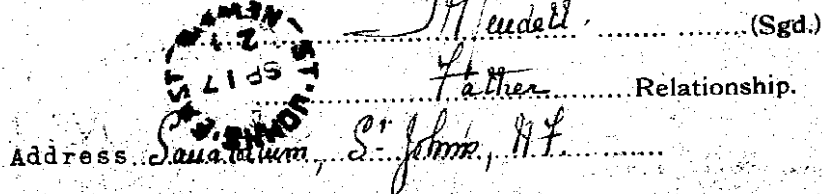 Mendell (Sgd.)
Father Relationship.
Address Sanatorium, St. John's, N.F.
ST. JOHN'S EAST
SP 17